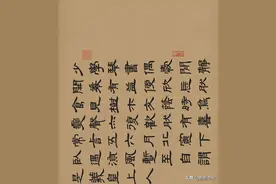 少學琴書偶愛閒靜
開卷有益便欣然忘
食見樹木交蔭時鳥
變聲亦復歡然有喜
常言五六月北窗下
臥遇涼風暫至自謂
是羲皇上人